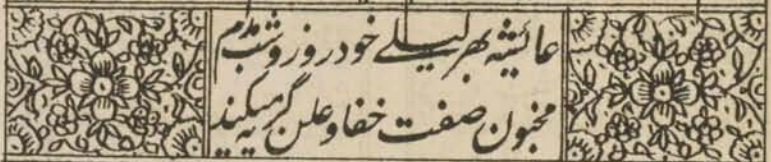 عائشہ بهر لیلے خود روز و شب مدام
مجنون صفت خفا و علن گریہ میکند